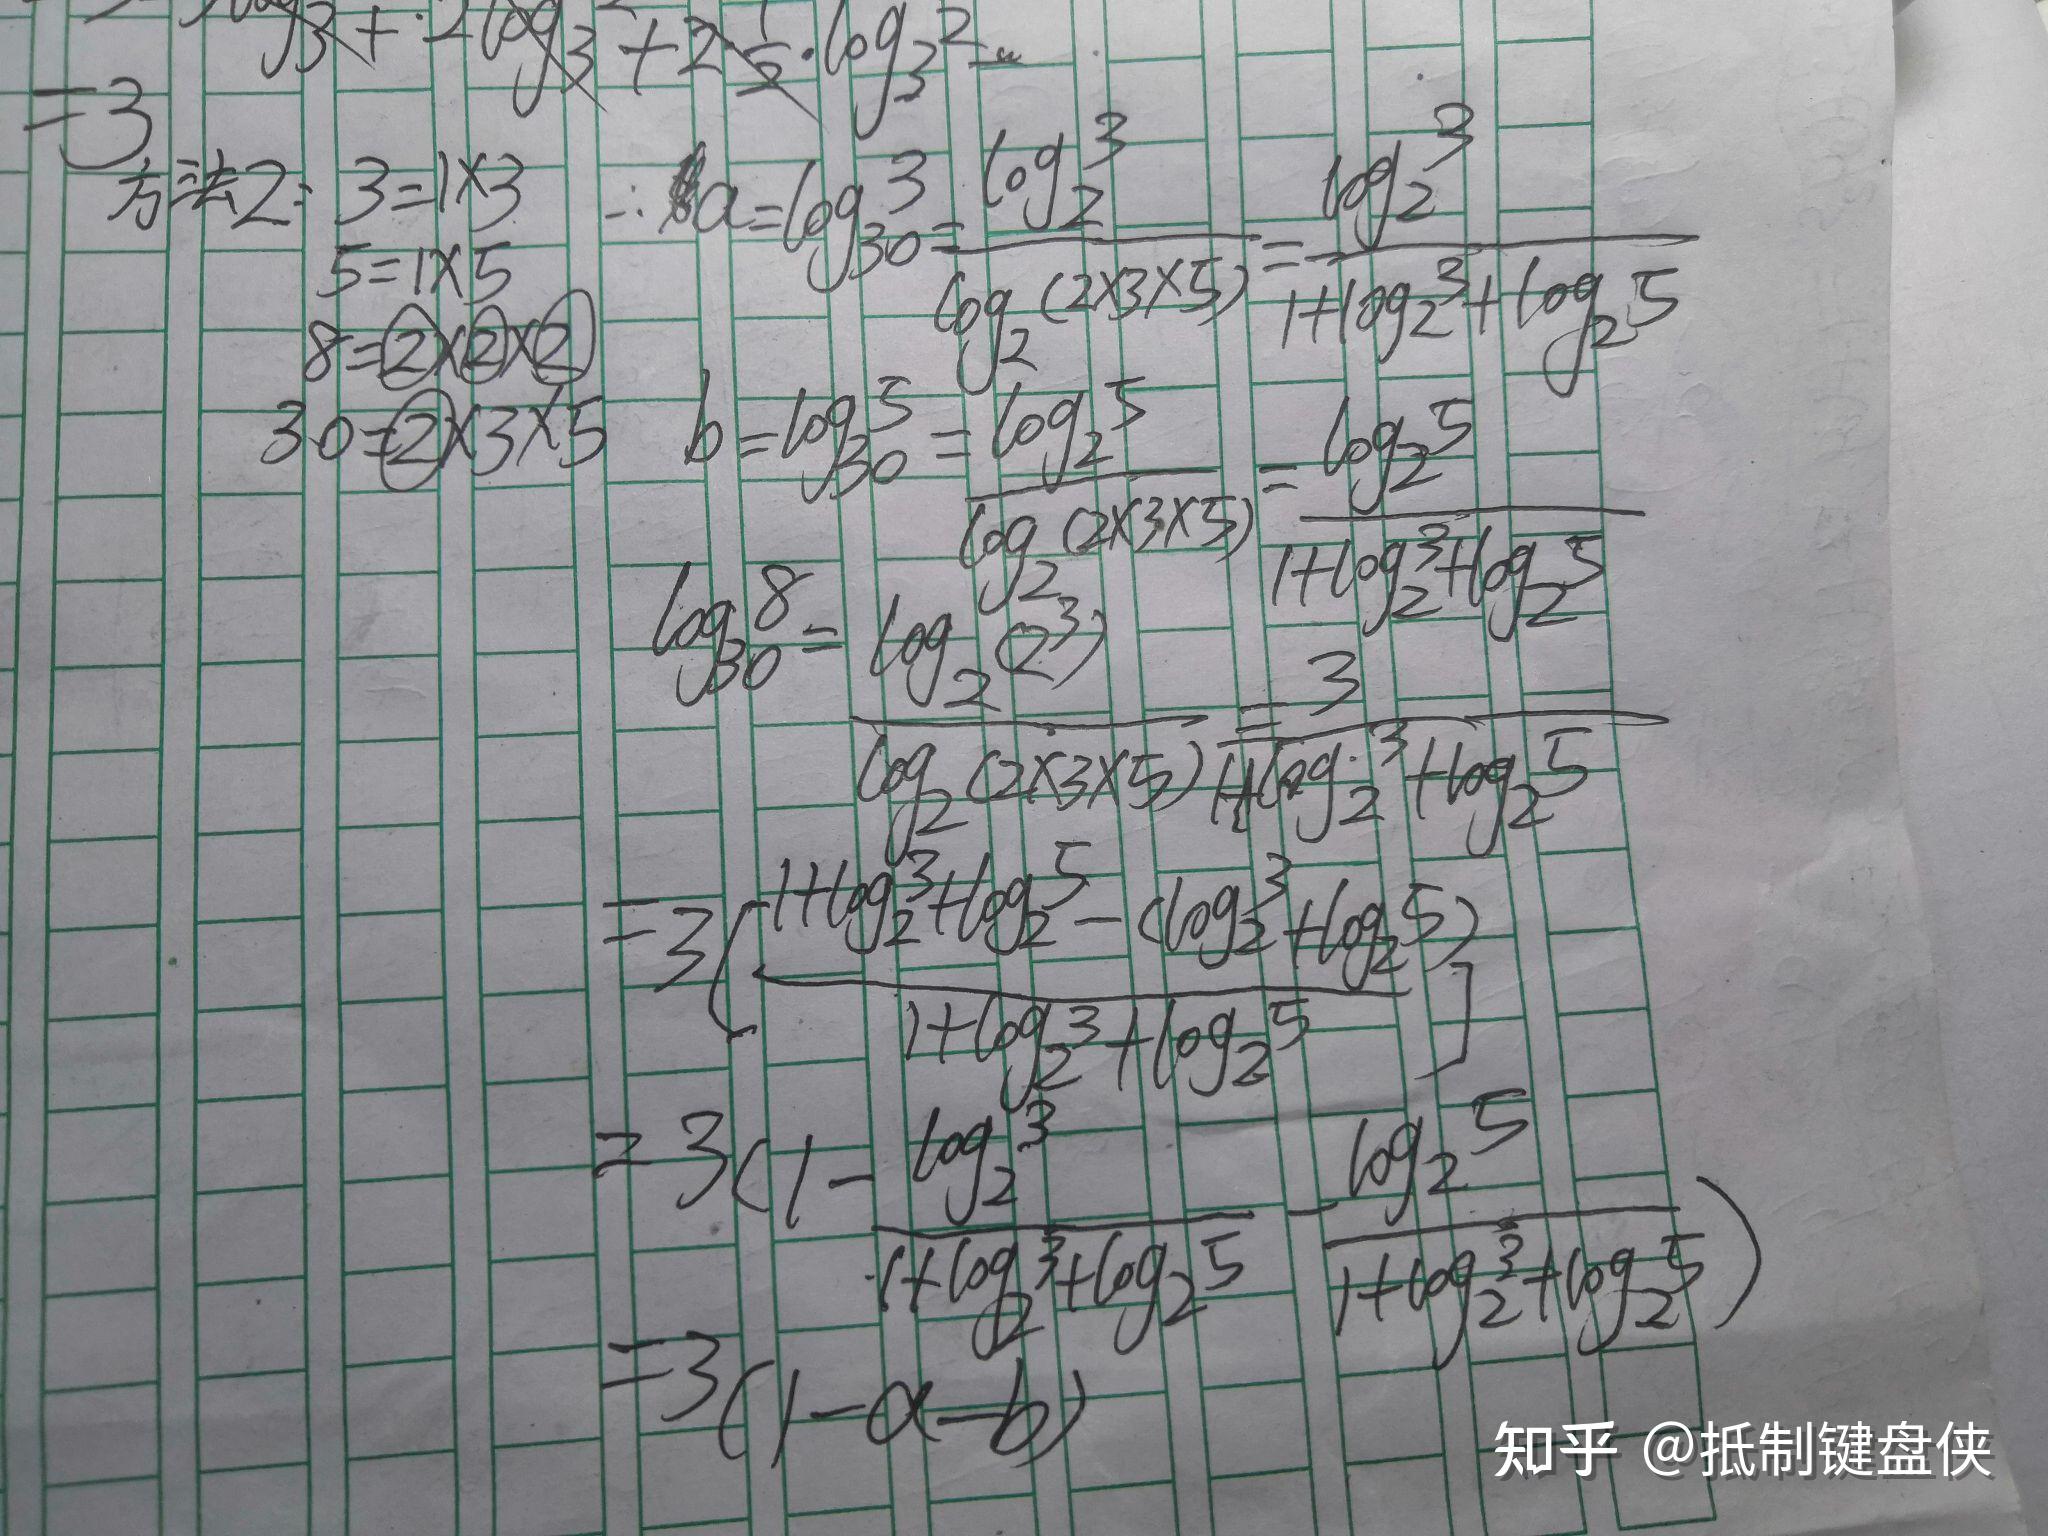 log₃ + 2log₃² + 2 - 1/2 · log₃²
=3
方法2: 3=1×3 ∴ a=log₃₀3 = log₂3 / log₂(2×3×5) = log₂3 / 1+log₂3+log₂5
5=1×5
8=2×2×2
30=2×3×5 b=log₃₀5 = log₂5 / log₂(2×3×5) = log₂5 / 1+log₂3+log₂5
log₃₀8 = log₂(2³) / log₂(2×3×5) = 3 / 1+log₂3+log₂5
=3[ 1+log₂3+log₂5-(log₂3+log₂5) / 1+log₂3+log₂5 ]
=3(1- log₂3 / 1+log₂3+log₂5 - log₂5 / 1+log₂3+log₂5 )
=3(1-a-b)
知乎 @抵制键盘侠